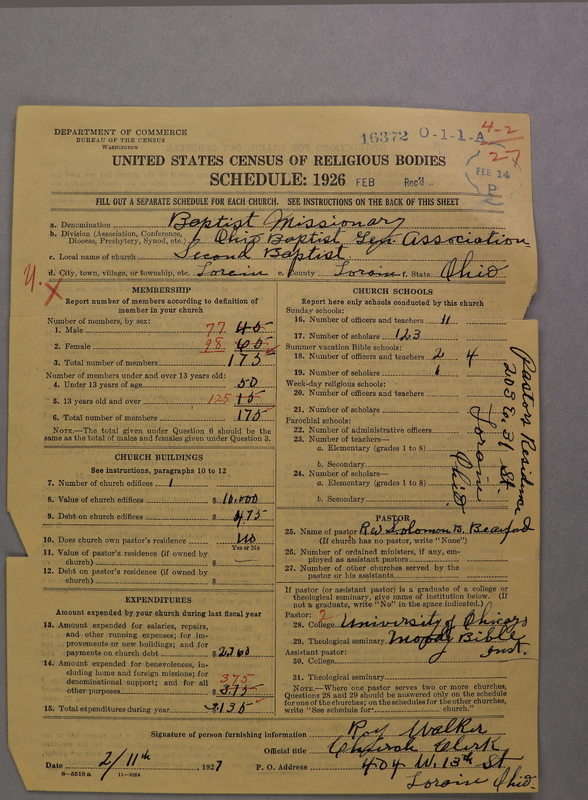 DEPARTMENT OF COMMERCE
BUREAU OF THE CENSUS
WASHINGTON
16372 O-1-1-A
4-2
27
UNITED STATES CENSUS OF RELIGIOUS BODIES
SCHEDULE: 1926 FEB Rec'd
FEB 14
P
FILL OUT A SEPARATE SCHEDULE FOR EACH CHURCH. SEE INSTRUCTIONS ON THE BACK OF THIS SHEET
a. Denomination Baptist Missionary
b. Division (Association, Conference, Diocese, Presbytery, Synod, etc.) Ohio Baptist Gen Association
c. Local name of church Second Baptist
d. City, town, village, or township, etc. Lorain e. County Lorain f. State Ohio
MEMBERSHIP
Report number of members according to definition of
member in your church
Number of members, by sex:
1. Male 77
2. Female 98
3. Total number of members 175
Number of members under and over 13 years old:
4. Under 13 years of age 50
5. 13 years old and over 125
6. Total number of members 175
NOTE.—The total given under Question 6 should be
the same as the total of males and females given under Question 3.
CHURCH BUILDINGS
See instructions, paragraphs 10 to 12
7. Number of church edifices 1
8. Value of church edifices $ 10,000
9. Debt on church edifices $ 475
10. Does church own pastor's residence No
Yes or No
11. Value of pastor's residence (if owned by
church) $ —
12. Debt on pastor's residence (if owned by
church) $
EXPENDITURES
Amount expended by your church during last fiscal year
13. Amount expended for salaries, repairs,
and other running expenses; for im-
provements or new buildings; and for
payments on church debt $ 2760
14. Amount expended for benevolences, in-
cluding home and foreign missions; for
denominational support; and for all
other purposes $ 375
375
15. Total expenditures during year $ 3135
CHURCH SCHOOLS
Report here only schools conducted by this church
Sunday schools:
16. Number of officers and teachers 11
17. Number of scholars 123
Summer vacation Bible schools:
18. Number of officers and teachers 2 4
19. Number of scholars
Week-day religious schools:
20. Number of officers and teachers
21. Number of scholars
Parochial schools:
22. Number of administrative officers
23. Number of teachers—
a. Elementary (grades 1 to 8)
b. Secondary
24. Number of scholars—
a. Elementary (grades 1 to 8)
b. Secondary
Pastors Residence
203 E. 31 St.
Lorain
Ohio
PASTOR
25. Name of pastor Rev Solomon B.
(If church has no pastor, write "None")
26. Number of ordained ministers, if any, em-
ployed as assistant pastors
27. Number of other churches served by the
pastor or his assistants
If pastor (or assistant pastor) is a graduate of a college or
theological seminary, give name of institution below. (If
not a graduate, write "No" in the space indicated.)
Pastor: ?
28. College University of Chicago
29. Theological seminary Moody Bible
Inst.
Assistant pastor:
30. College
31. Theological seminary
NOTE.—Where one pastor serves two or more churches,
Questions 28 and 29 should be answered only on the schedule
for one of the churches; on the schedules for the other churches,
write "See schedule for church."
Signature of person furnishing information Roy Walker
Official title Church Clerk
Date 2/11th, 1927 P. O. Address 404 W. 13th St
Lorain Ohio.